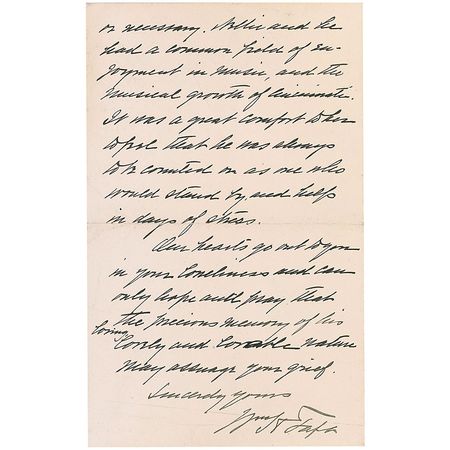 or necessary. Nellie and he
had a common field of en-
joyment in music, and the
musical growth of Cincinnati.
It was a great comfort to her
to feel that he was always
to be counted on as one who
would stand by and help
in days of stress.
Our hearts go out to you
in your loneliness and can
only hope and pray that
the precious memory of his
loving
lovely and lovable nature
may assuage your grief.
Sincerely yours
Wm H Taft